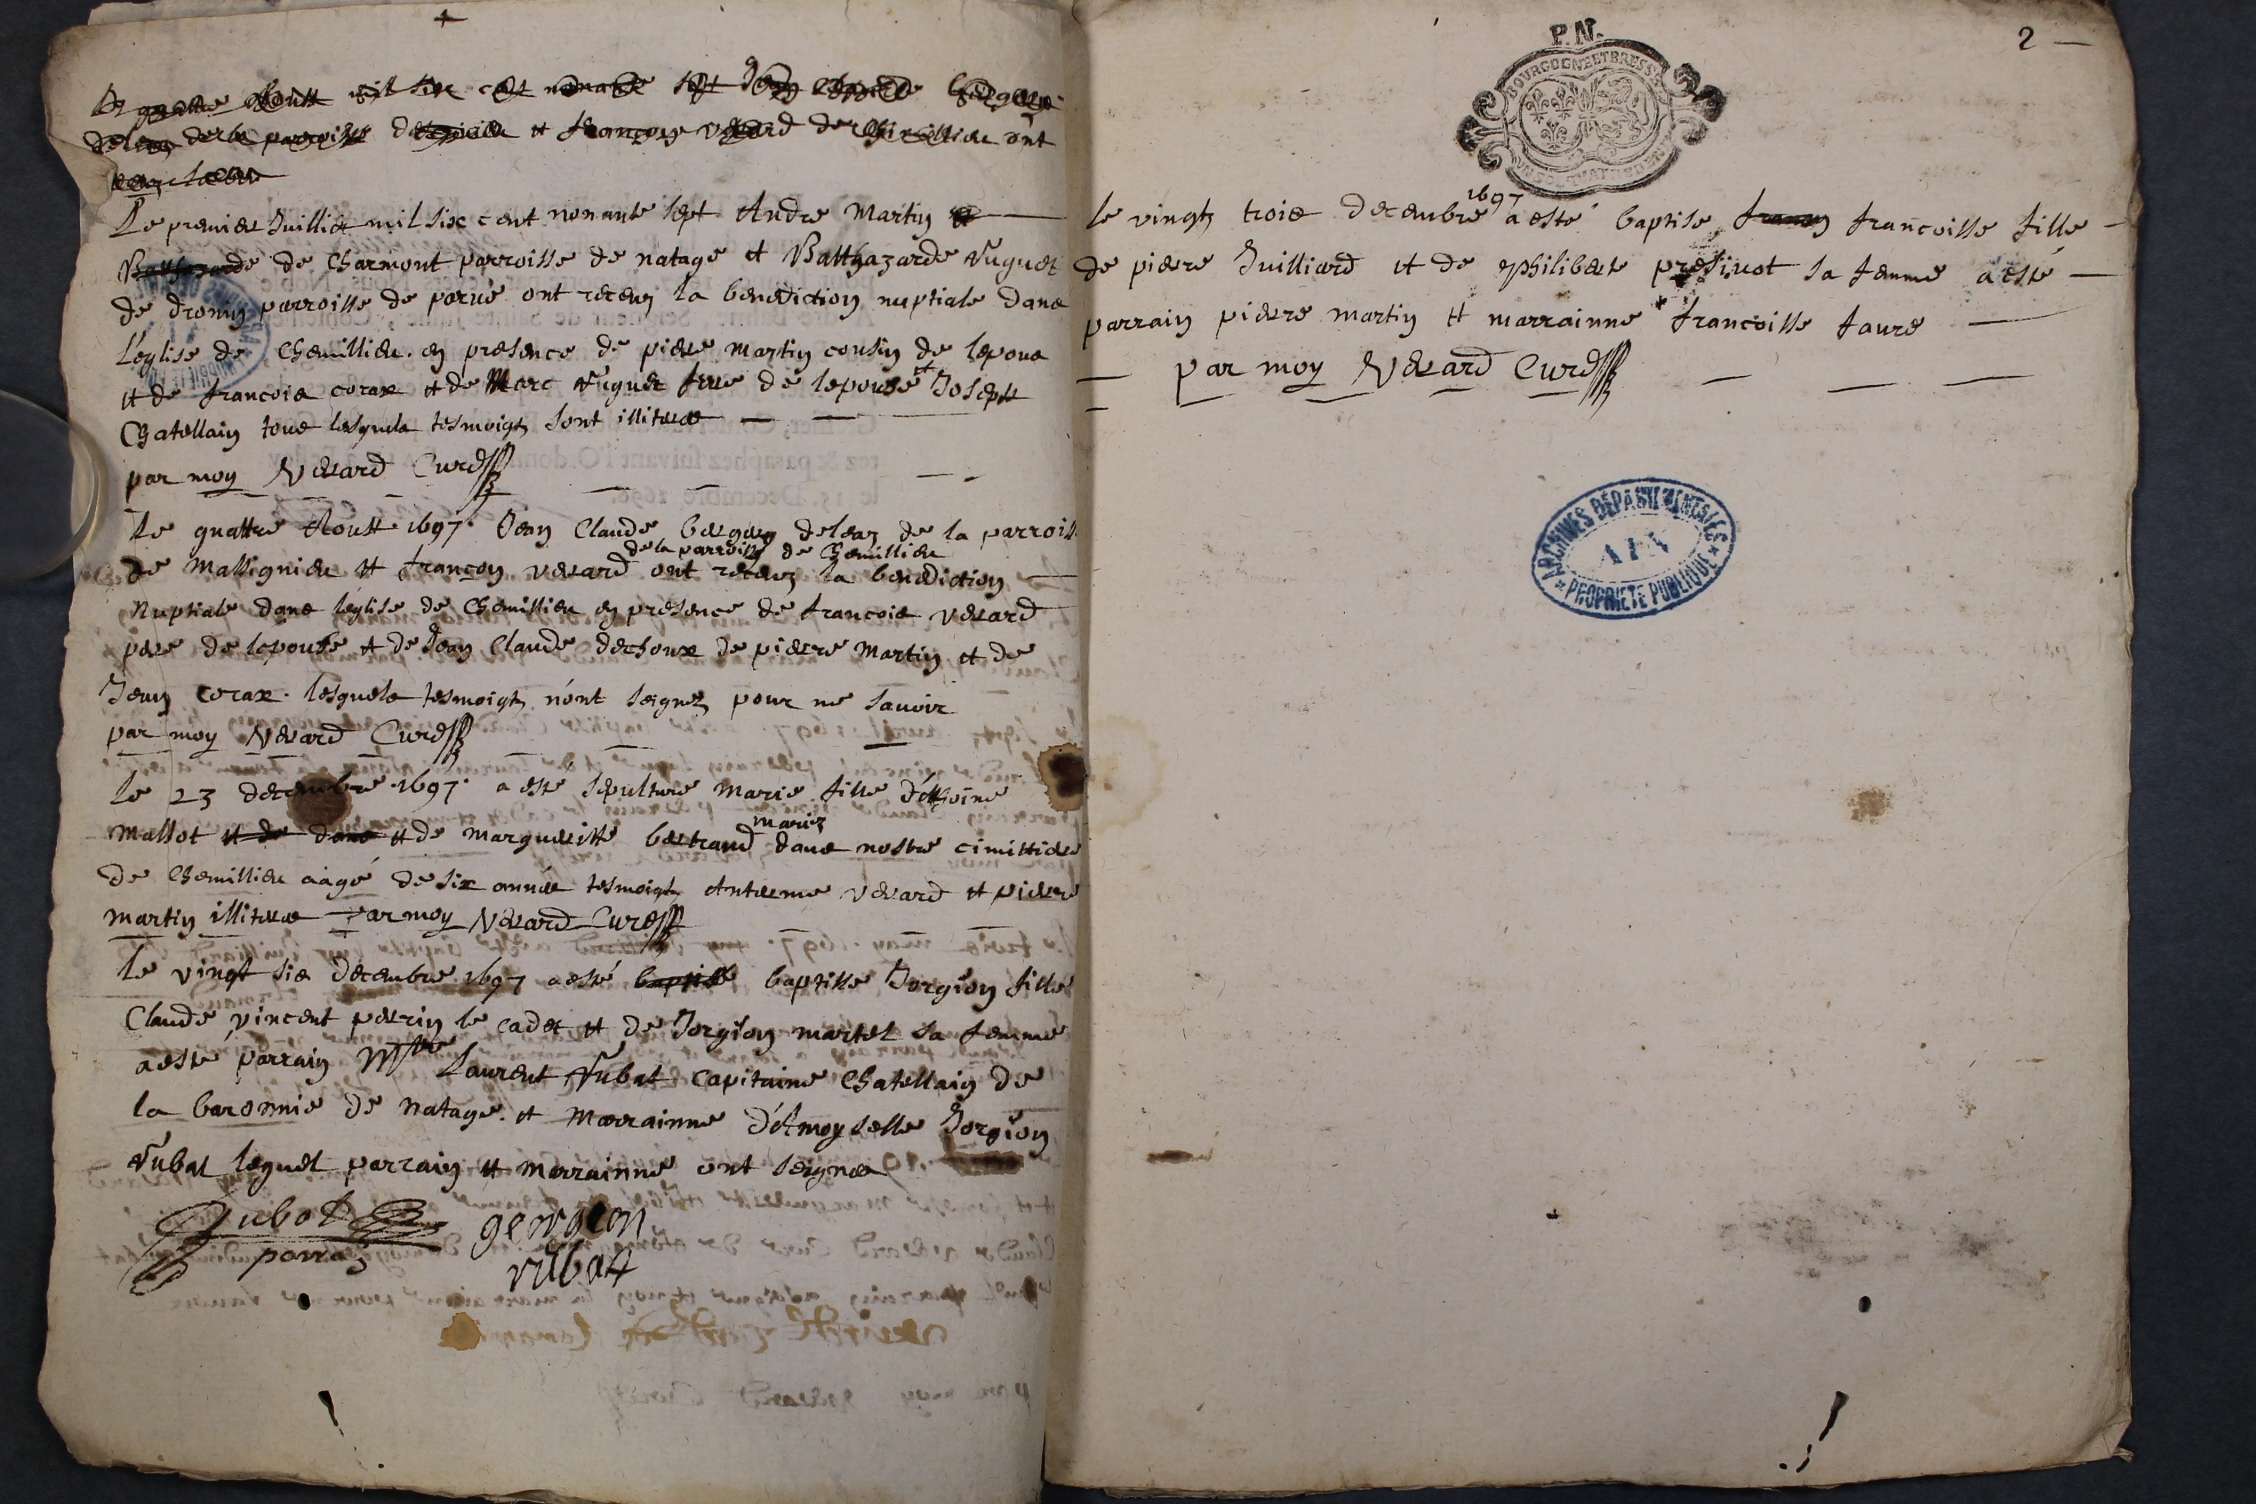 Le quattre Aoust mil six cent nonante sept Jean Claude bergery
delean de la parroisse de et françon verard de Chemillieu ont
receu la ben
Le premier Juillict mil six cent nonante sept Andre Martin et
Balthazarde de Charmont parroisse de natage et Balthazarde Vuguet
de dromin parroisse de parué ont receuz la benediction nuptiale dans
L'église de Chemillieu en presence de pierre martin cousin de lepoux
et de francois corax et de Marc Vuguet frere de lepouse et Joseph
Chatellain tous lesquels tesmoigs sont illiteres
par moy Verard Curé
Le quattre Aoust 1697 Jean Claude bergery delean de la parroiss
de la parroisse de Chemillieu
de Massignieu et françon verard ont receuz la benediction
Nuptiale dans léglise de Chemillieu en presence de francois verard
pere de lepouse et de Jean Claude dechoux de pierre Martin et de
Jean corax lesquels tesmoigs n'ont seignez pour ne sauoir
par moy Verard Curé
Le 23 decembre 1697 a esté sepulture Marie fille d'Antoine
mariez
Mallot et de dans et de Margueritte bertrand dans nostre cimittiere
de Chemillieu aàgé de six année tesmoigs Anterme verard et pierre
martin illiteres Par moy Verard Curé
le vingt six decembre 1697 a esté baptisse baptisse Jorgion fille
Claude vincent perrin le cadet et de Jorgion martel sa femme
a esté parrain Mstre Laurent Rubat capitaine Chatellain de
la baronnie de Natage et Marrainne d'Amoyselle Jorgion
Rubat lequel parrain et marrainne ont seignes
Rubat
parrain
georgeon
rubat
P.N.
BOURGOGNE ET BRESSE
2
1697
le vingtz troix decembre a esté baptise francoisse fille
de pierre Juilliard et de philiberte presiuot sa femme a esté
parrain pierre martin et marrainne francoisse faure
par moy Verard Curé
ARCHIVES DEPARTEMENTALES
AIN
PROPRIETE PUBLIQUE